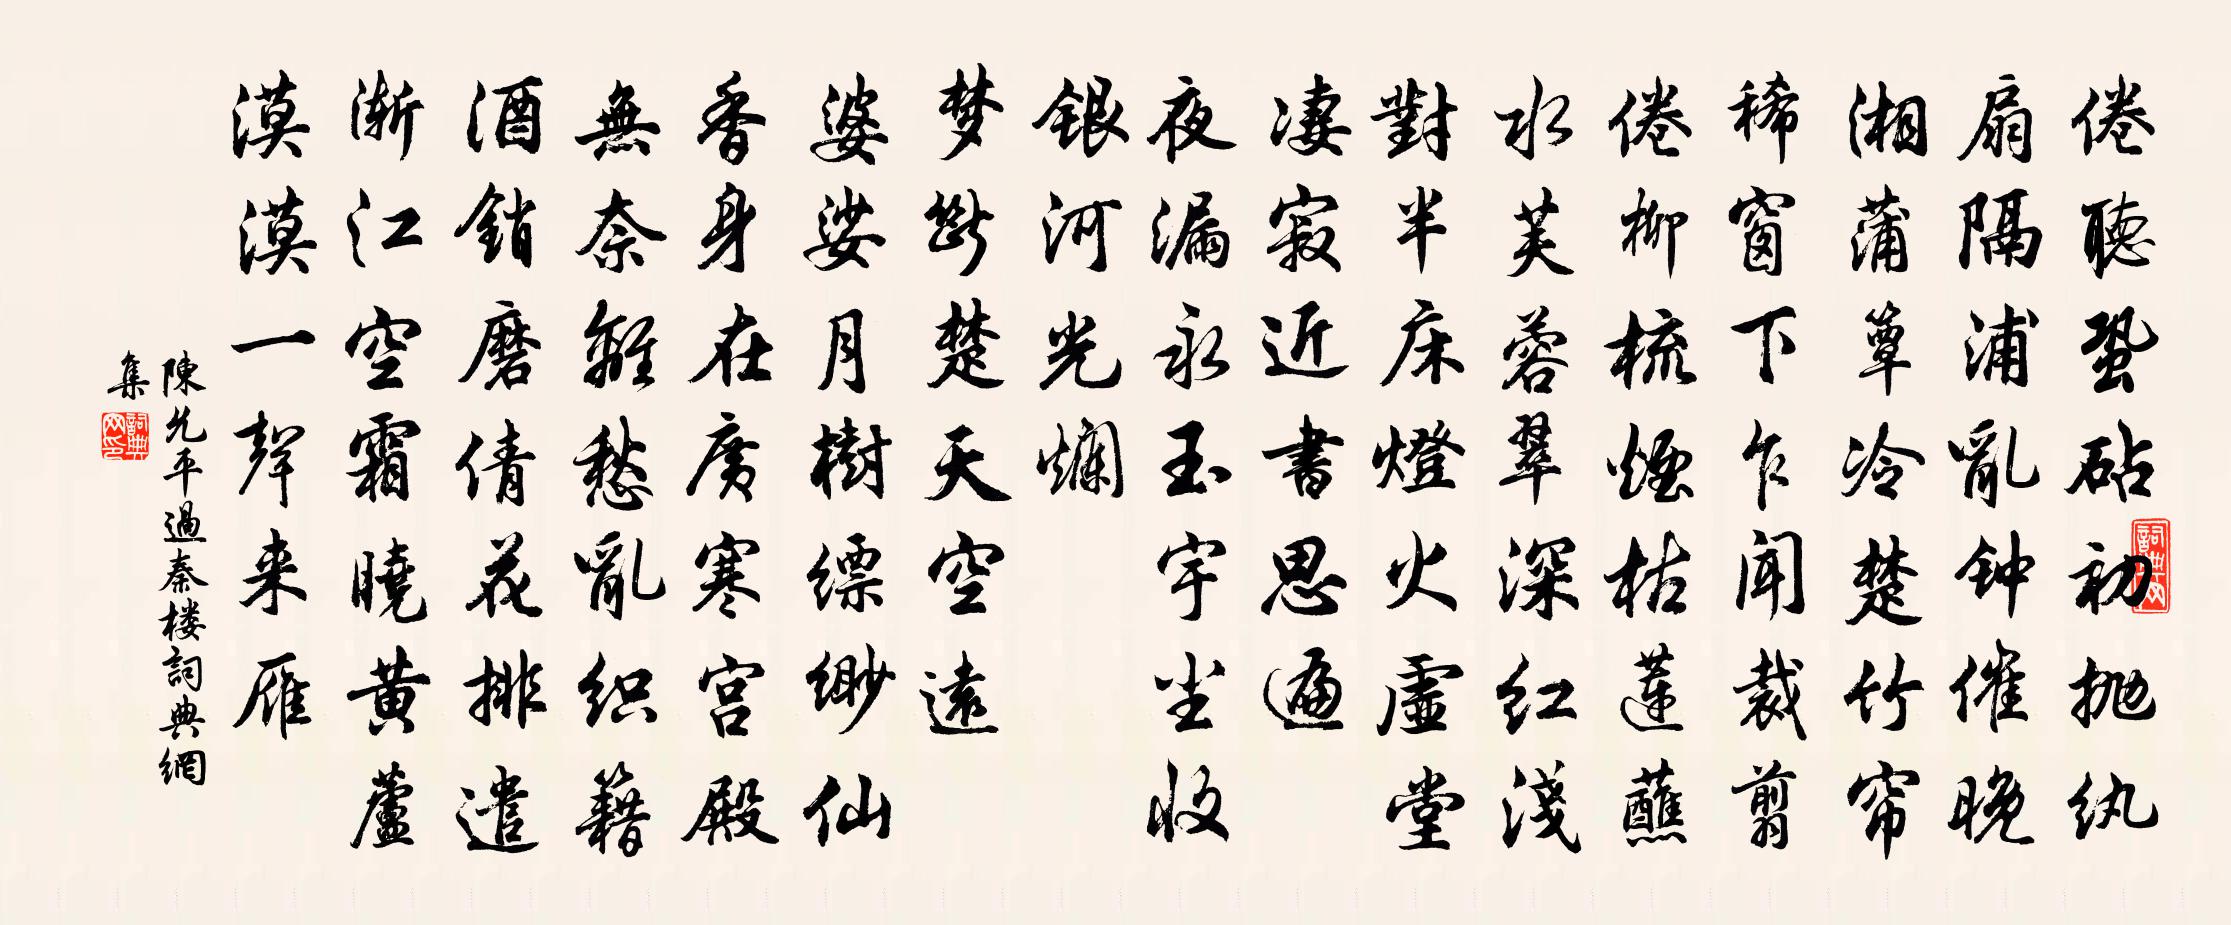 倦聽蛩砧初抛纨
扇隔浦亂钟催晚
湘蒲簟冷楚竹帘
稀窗下乍闻裁剪
倦柳梳煙枯蓮蘸
水芙蓉翠深红淺
對半床燈火虚堂
凄寂近書思遍
夜漏永玉宇尘收
銀河光爛
梦斷楚天空遠
婆娑月樹缥缈仙
香身在廣寒宫殿
無奈離愁亂织籍
酒銷磨倩花排遣
渐江空霜曉黄蘆
漠漠一聲来雁
陳允平過秦楼詞典網
集
詞典网
詞典网印